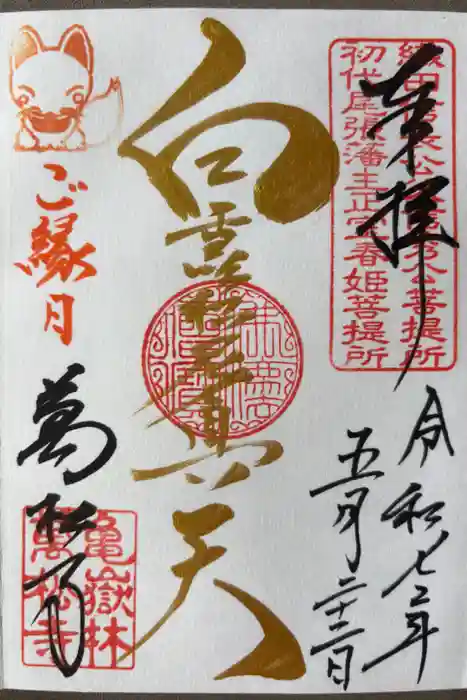 奉拝
織田信長公父信秀公菩提所
初代尾張藩主正室春姫菩提所
令和七年
五月二十二日
白雪吒枳尼真天
ご縁月
萬松寺
亀嶽林
萬松寺